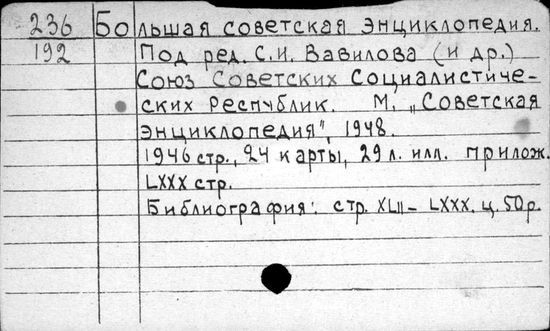 236 Большая советская энциклопедия.
192 Под ред. С.И. Вавилова (и др.)
Союз Советских Социалистиче-
ских Республик. М. „Советская
энциклопедия", 1948.
1946 стр., 24 карты, 29 л. илл. прилож.
LXXX стр.
Библиография: стр. XLII – LXXX. ц. 50р.